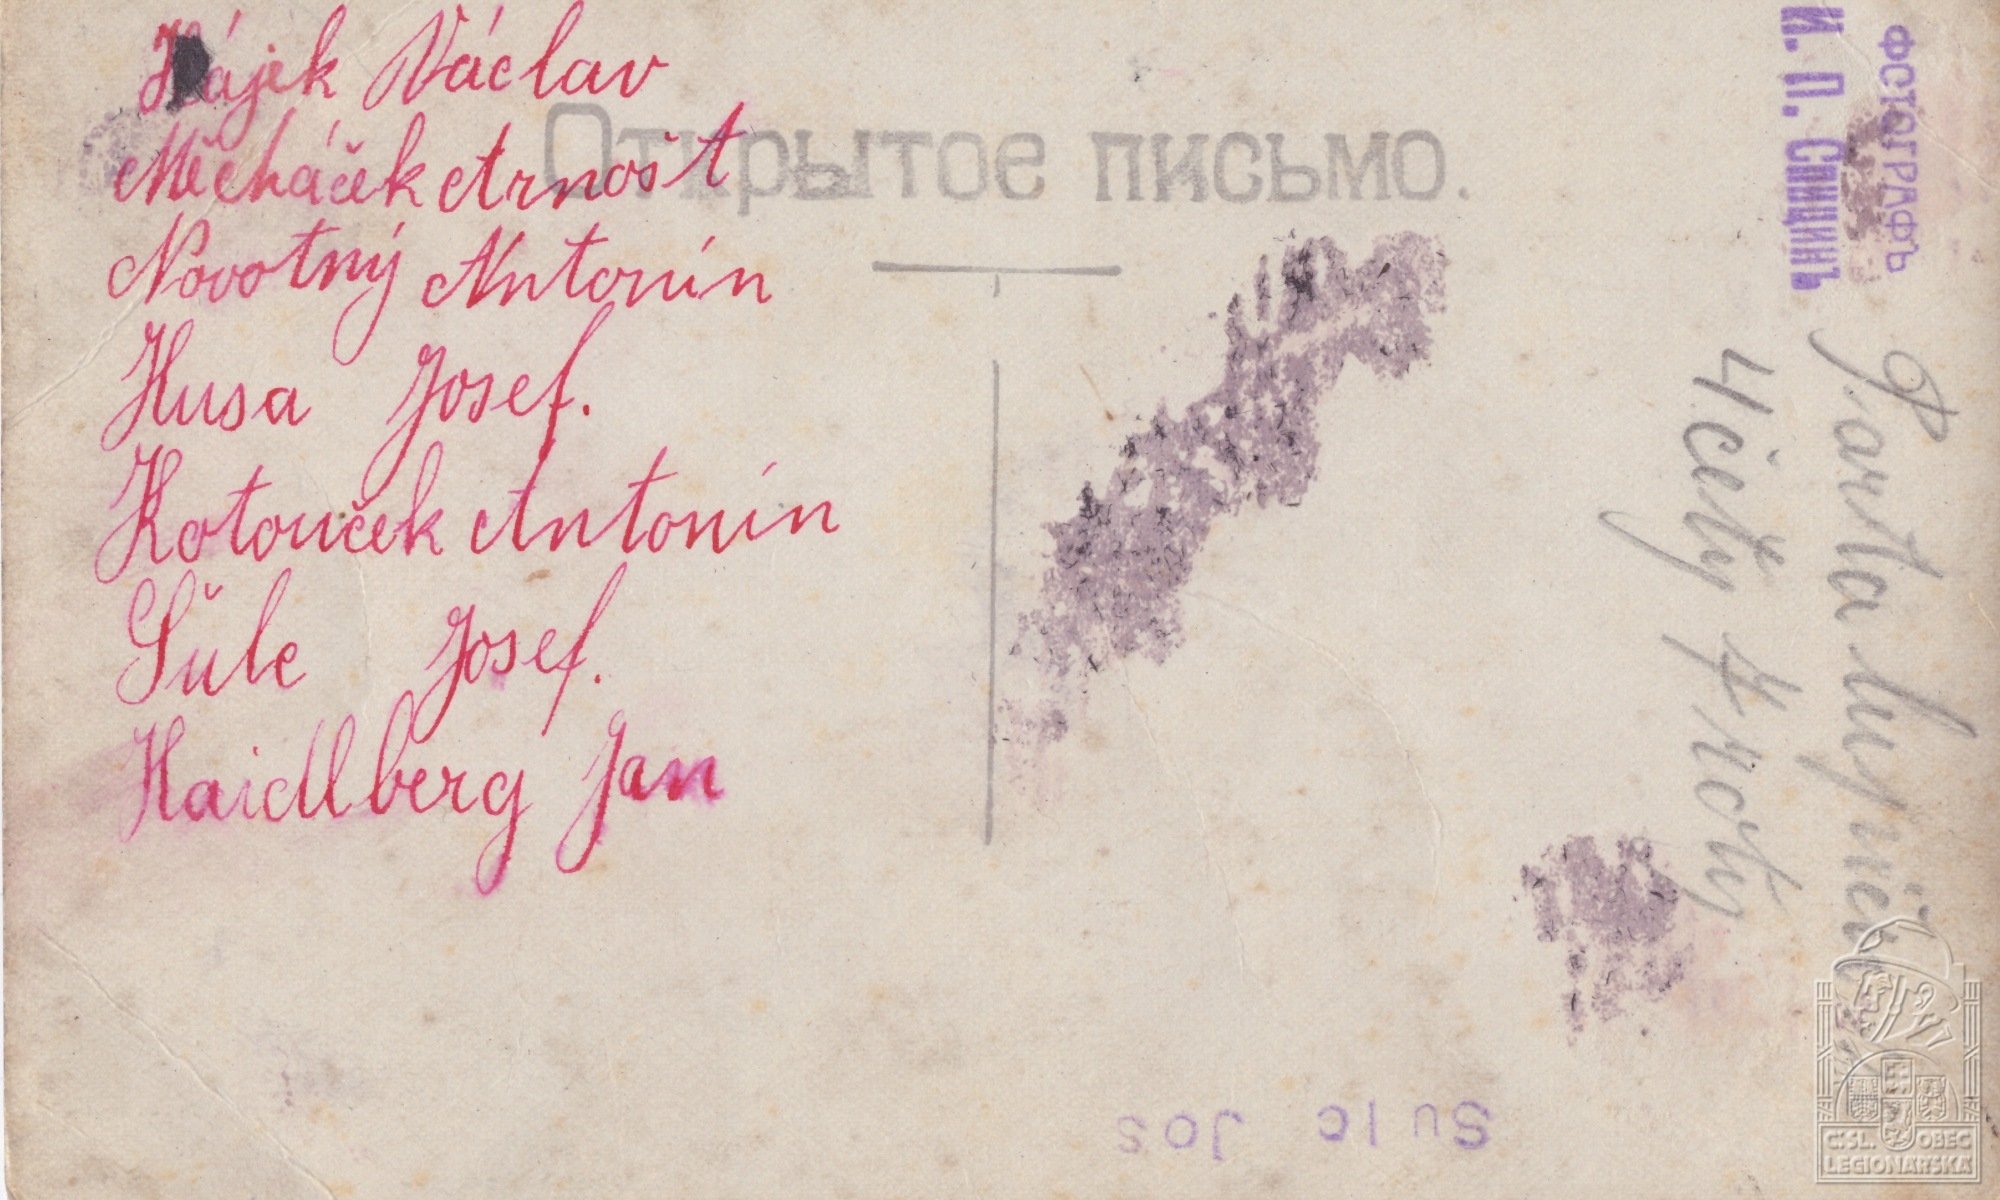 Hájek Václav
Měcháček Arnošt
Novotný Antonín
Husa Josef.
Kotouček Antonín
Šůle Josef.
Haidlberg Jan
Открытое письмо.
ФОТОГРАФЪ
И. П. Спицинъ
Parta
4 čety
Sulc Jos
ČSL. OBEC
LEGIONÁŘSKÁ